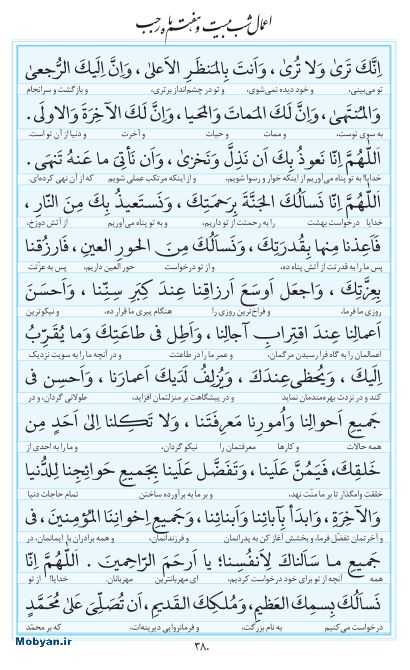 اعمال شب بیست و هفتم ماه رجب
اِنَّكَ تَرىٰ وَلا تُرىٰ، وَاَنتَ بِالمَنظَرِ الاَعلىٰ، وَاِنَّ اِلَيكَ الرُّجعىٰ
تو می‌بینی، و خود دیده نمی‌شوی، و تو در چشم‌انداز برتری، و بازگشت و سرانجام
وَالمُنتَهىٰ، وَاِنَّ لَكَ المَماتَ وَالمَحيا، وَاِنَّ لَكَ الآخِرَةَ وَالاولىٰ.
به سوی توست، و ممات و حیات و آخرت و دنیا از آن تو است.
اَللّٰهُمَّ اِنّا نَعوذُ بِكَ اَن نَذِلَّ وَنَخزىٰ، وَاَن نَأتِىَ ما عَنهُ تَنهىٰ.
خدایا به تو پناه می‌آوریم از اینکه خوار و رسوا شویم، و از اینکه مرتکب عملی شویم که از آن نهی کرده‌ای.
اَللّٰهُمَّ اِنّا نَسأَلُكَ الجَنَّةَ بِرَحمَتِكَ، وَنَستَعيذُ بِكَ مِنَ النّارِ،
خدایا درخواست بهشت را به رحمتت از تو داریم، و به تو پناه می‌آوریم از آتش دوزخ،
فَاَعِذنا مِنها بِقُدرَتِكَ، وَنَسأَلُكَ مِنَ الحورِ العينِ، فَارزُقنا
پس ما را به قدرتت از آتش پناه ده، و از تو درخواست حور العین داریم، پس به عزّتت
بِعِزَّتِكَ، وَاجعَل اَوسَعَ اَرزاقِنا عِندَ كِبَرِ سِنِّنا، وَاَحسَنَ
روزی ما فرما، و فراخ‌ترین روزی را هنگام پیری ما قرار ده، و نیکوترین
اَعمالِنا عِندَ اقتِرابِ آجالِنا، وَاَطِل فى طاعَتِكَ وَما يُقَرِّبُ
اعمالمان را به گاه فرا رسیدن مرگمان، و عمر ما را در طاعتت و در آنچه ما را به سویت نزدیک
اِلَيكَ، وَيُحظى عِندَكَ، وَيُزلِفُ لَدَيكَ اَعمارَنا، وَاَحسِن فى
کند و در نزدت بهره‌مندمان نماید و در پیشگاهت بر منزلتمان افزاید، طولانی گردان، و در
جَميعِ اَحوالِنا وَاُمورِنا مَعرِفَتَنا، وَلا تَكِلنا اِلىٰ اَحَدٍ مِن
همه حالات و کارها معرفتمان را نیکو گردان، و ما را به احدی از
خَلقِكَ، فَيَمُنَّ عَلَينا، وَتَفَضَّل عَلَينا بِجَميعِ حَوائِجِنا لِلدُّنيا
خلقت وامگذار تا بر ما منّت نهد، و بر ما به برآورده ساختن تمام حاجات دنیا
وَالآخِرَةِ، وَابدَأ بِآبائِنا وَاَبنائِنا، وَجَميعِ اِخوانِنَا المُؤمِنينَ، فى
و آخرتمان تفضّل فرما، و بخشش آغاز کن به پدرانمان و فرزندانمان، و همه برادران با ایمانمان، در
جَميعِ ما سَأَلناكَ لِاَنفُسِنا؛ يا اَرحَمَ الرّاحِمينَ. اَللّٰهُمَّ اِنّا
همه آنچه از تو برای خود درخواست کردیم، ای مهربانترین مهربانان. خدایا! از تو
نَسأَلُكَ بِاسمِكَ العَظيمِ، وَمُلكِكَ القَديمِ، اَن تُصَلِّىَ عَلىٰ مُحَمَّدٍ
درخواست می‌کنیم به نام بزرگت، و فرمانروایی دیرینه‌ات، که بر محمّد
۳۸۰
Mobyan.ir